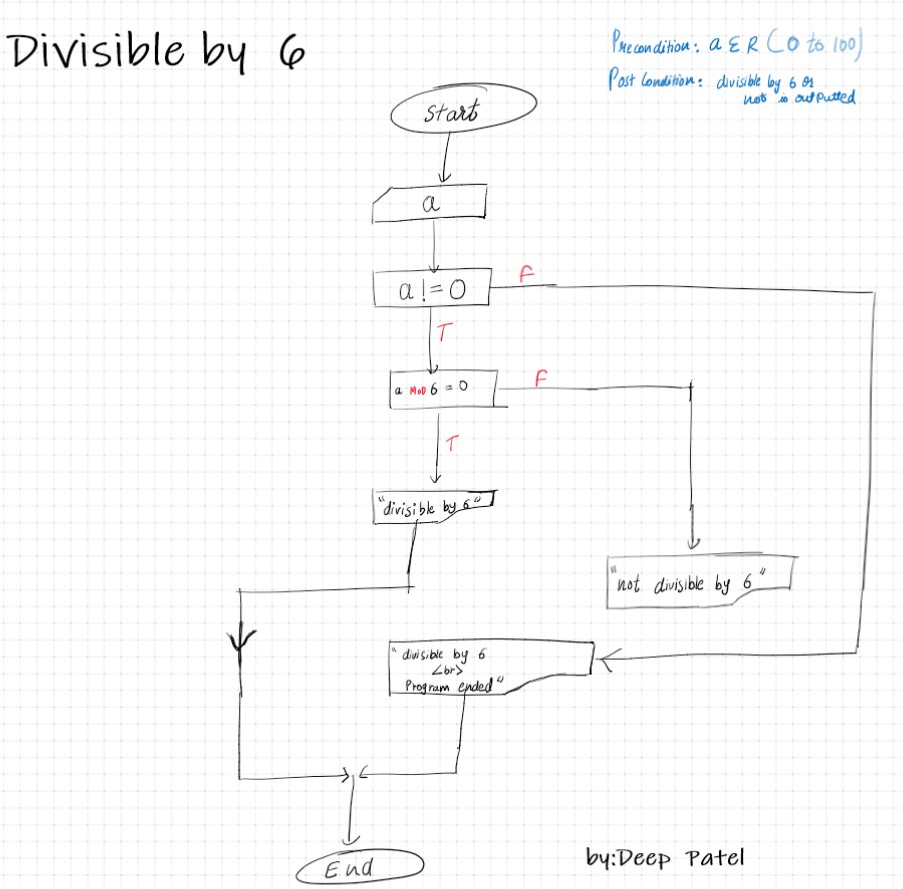 Divisible by 6
Precondition: a ε R (0 to 100)
Post Condition: divisible by 6 or
not is outputted
Start
a
a != 0
F
T
a MOD 6 = 0
F
T
"divisible by 6"
"not divisible by 6"
"divisible by 6
<br>
Program ended"
End
by:Deep Patel